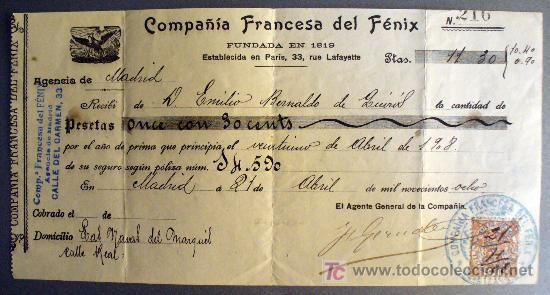 Compañía Francesa del Fénix
N. 216
FUNDADA EN 1819
Establecida en París, 33, rue Lafayette
Ptas. 11 30
10.40
0.90
Agencia de Madrid
Recibí de D. Emilio Bernaldo de Quirós la cantidad de
Pesetas once con 30 cents
por el año de prima que principia el veintiuno de Abril de 1908
de su seguro según póliza núm.
En Madrid a 21 de Abril de mil novecientos ocho
El Agente General de la Compañía,
Cobrado el de
Domicilio Las Navas del Marqués
Calle Real
COMPAÑIA FRANCESA DEL FÉNIX
Comp.ª Francesa del FÉNIX
Agencia de Madrid
CALLE DEL CARMEN, 33
COMPAÑIA FRANCESA DEL FENIX
todocoleccion.net